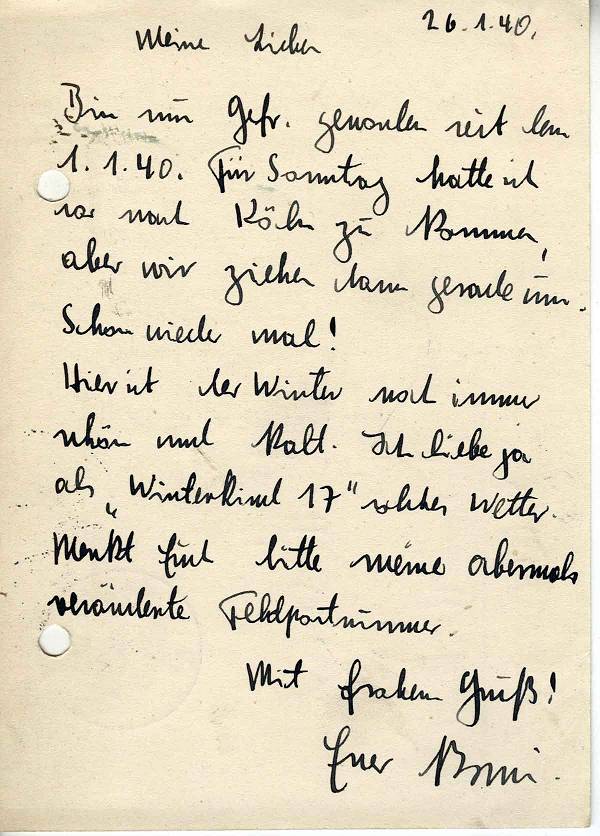 26.1.40.
Meine Lieben
Bin nun Gefr. geworden seit dem
1.1.40. Für Sonntag hatte ich
vor nach Köln zu kommen,
aber wir ziehen dann gerade um.
Schon wieder mal!
Hier ist der Winter noch immer
schön und kalt. Ich liebe ja
als „Winterkind 17" solches Wetter.
Merkt Euch bitte meine abermals
veränderte Feldpostnummer.
Mit frohem Gruß!
Euer